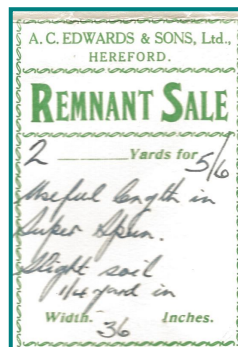 A. C. EDWARDS & SONS, Ltd.,
HEREFORD.
REMNANT SALE
2 Yards for 5/6
Useful length in
Super Spun.
Slight soil
1/4 yard in
Width. 36 Inches.